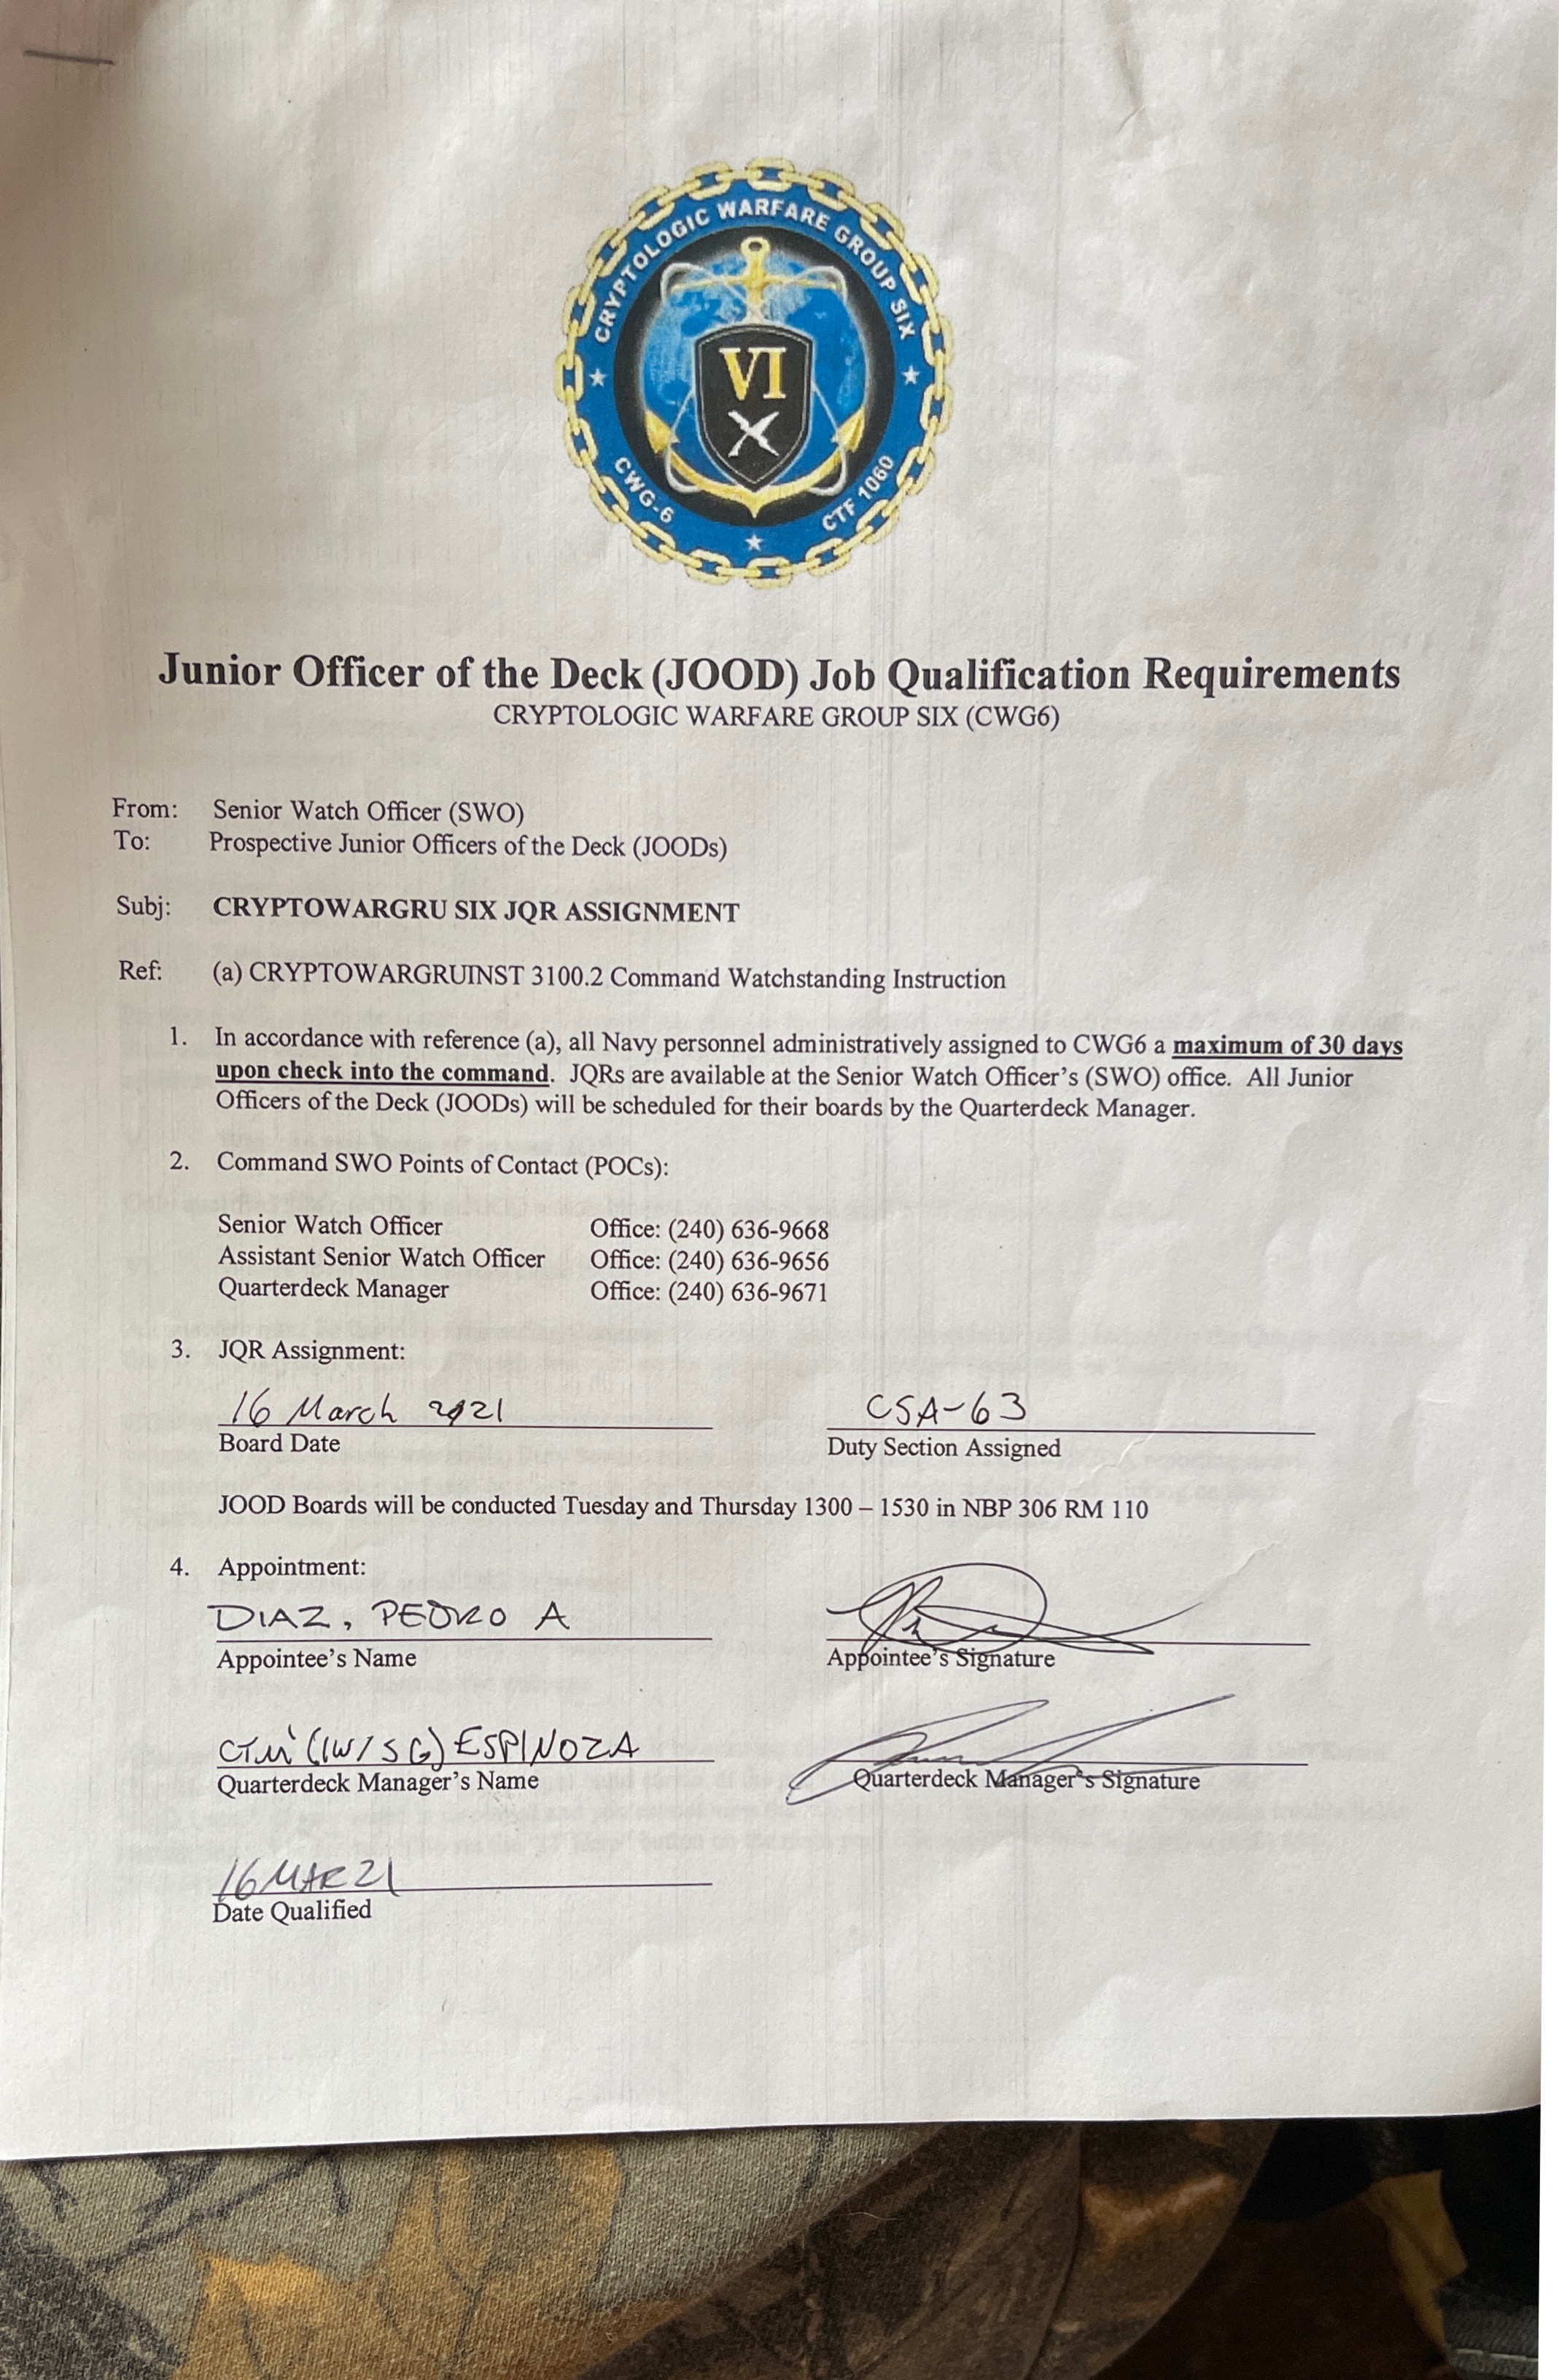 CRYPTOLOGIC WARFARE GROUP SIX
VI
CWG-6
CTF 1060
Junior Officer of the Deck (JOOD) Job Qualification Requirements
CRYPTOLOGIC WARFARE GROUP SIX (CWG6)
From: Senior Watch Officer (SWO)
To: Prospective Junior Officers of the Deck (JOODs)
Subj: CRYPTOWARGRU SIX JQR ASSIGNMENT
Ref: (a) CRYPTOWARGRUINST 3100.2 Command Watchstanding Instruction
1. In accordance with reference (a), all Navy personnel administratively assigned to CWG6 a maximum of 30 days
upon check into the command. JQRs are available at the Senior Watch Officer's (SWO) office. All Junior
Officers of the Deck (JOODs) will be scheduled for their boards by the Quarterdeck Manager.
2. Command SWO Points of Contact (POCs):
Senior Watch Officer Office: (240) 636-9668
Assistant Senior Watch Officer Office: (240) 636-9656
Quarterdeck Manager Office: (240) 636-9671
3. JQR Assignment:
16 March 2021 CSA-63
Board Date Duty Section Assigned
JOOD Boards will be conducted Tuesday and Thursday 1300 – 1530 in NBP 306 RM 110
4. Appointment:
DIAZ, PEDRO A
Appointee's Name Appointee's Signature
(IW/SG) ESPINOZA
Quarterdeck Manager's Name Quarterdeck Manager's Signature
16 MAR 21
Date Qualified